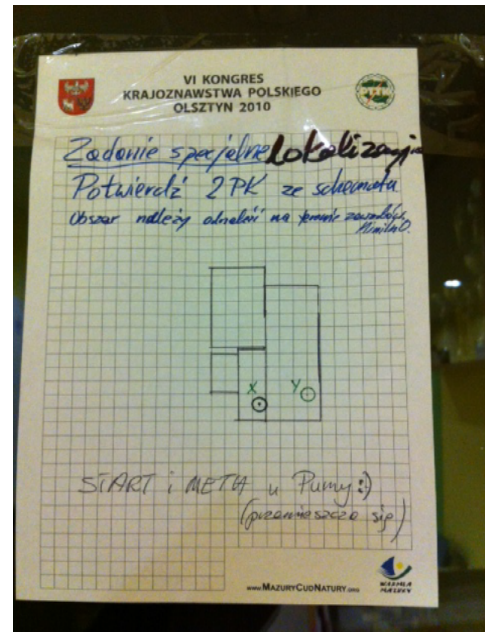 VI KONGRES
KRAJOZNAWSTWA POLSKIEGO
OLSZTYN 2010
Zadanie specjalne lokalizacja
Potwierdź 2 PK ze schematu
Obszar należy odnaleźć na terenie zawodów
MiniInO.
X Y
START i META u Pumy :)
(przemieszcza się)
www.MAZURYCUDNATURY.org
WARMIA
MAZURY